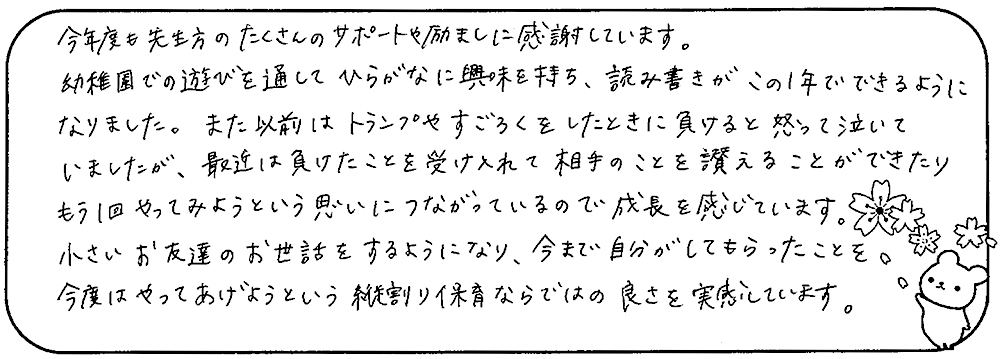 今年度も先生方のたくさんのサポートや励ましに感謝しています。
幼稚園での遊びを通してひらがなに興味を持ち、読み書きがこの1年でできるように
なりました。また以前はトランプやすごろくをしたときに負けると怒って泣いて
いましたが、最近は負けたことを受け入れて相手のことを讃えることができたり
もう1回やってみようという思いにつながっているので成長を感じています。
小さいお友達のお世話をするようになり、今まで自分がしてもらったことを
今度はやってあげようという縦割り保育ならではの良さを実感しています。